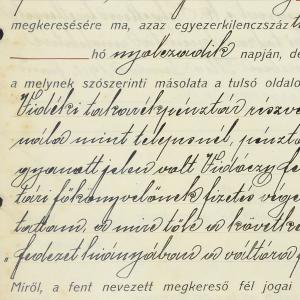 megkeresésére ma, azaz egyezerkilenczszáz
hó nyolczadik napján, de
a melynek szószerinti másolata a tulsó oldalo
Vidéki takarékpénztár részve
nála mint telepesnél, pénztá
gyanott jelen volt Vidóczy fe
tári főkönyvelőnek fizetés vége
tattam, a mire tőle a követke
„fedezet hiányában a váltára f
Miről, a fent nevezett megkereső fél jogai